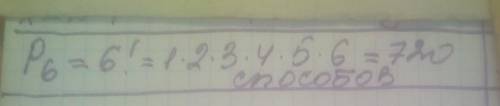 P₆ = 6! = 1·2·3·4·5·6 = 720
способов